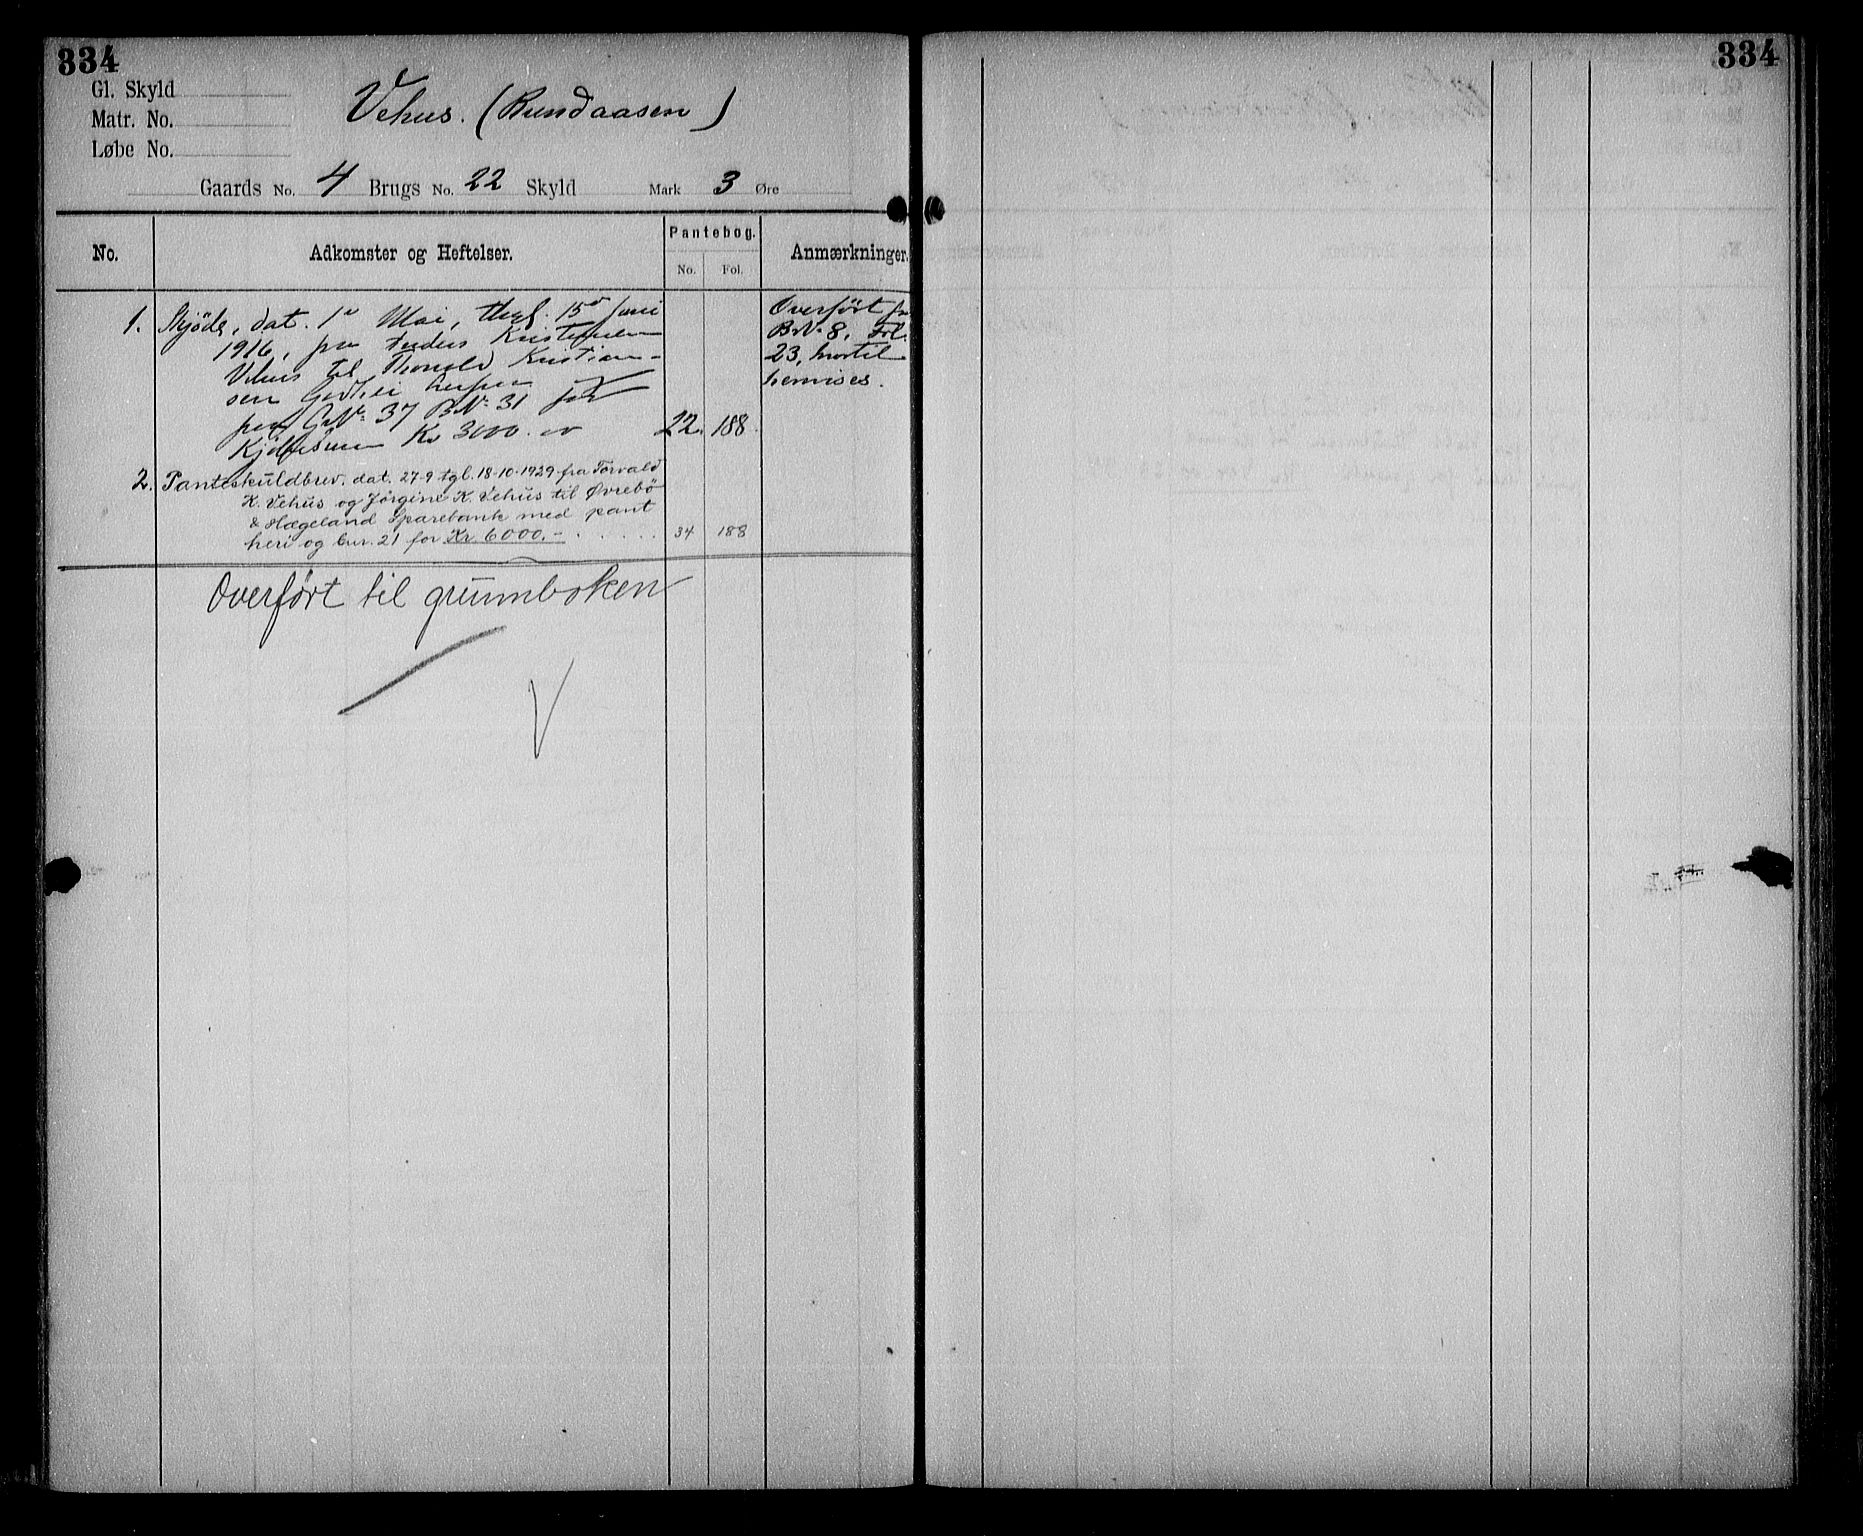 334
334
Gl. Skyld
Matr. No.
Løbe No.
Vehus. (Rundaasen)
Gaards No. 4 Brugs No. 22 Skyld Mark 3 Øre
No.
Adkomster og Heftelser.
Pantebog.
No. Fol.
Anmærkninger.
1. Skjøde, dat. 1ˢ Mai, thgl. 15ᵈ Juni
1916, fra Anders Kristensen
Vehus til Thorvald Kristian-
sen
GN: 37 BN: 31 for
Kjøbesum Kr 3000.00 22. 188.
Overført fra
BN: 8, Fol.
23, hvortil
henvises.
2. Panteskuldbrev. dat. 27-9 tgl. 18-10-1929 fra Torvald
K. Vehus og Jørgine K. Vehus til Øvrebø
& Hægeland Sparebank med pant
heri og bnr. 21 for Kr. 6000.- . . . . . 34 188
Overført til grunnboken